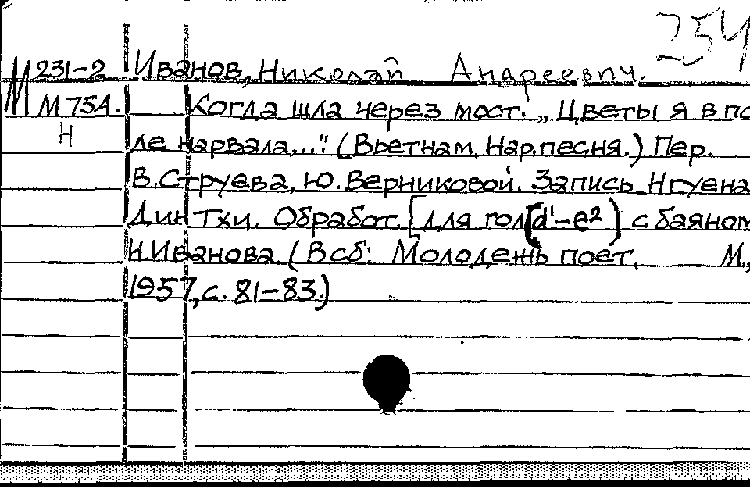 254
М 231-2 Иванов, Николай Андреевич.
М 754. Когда шла через мост. „Цветы я в по
Н
ле нарвала..." (Вьетнам. Нар. песня.) Пер.
В. Струева, Ю. Верниковой. Запись Нгуена
Дин Тхи. Обработ. [для гол. (d¹-e²) с баяном
Н. Иванова. (В сб: Молодежь поет. М.,
1957, с. 81-83.)